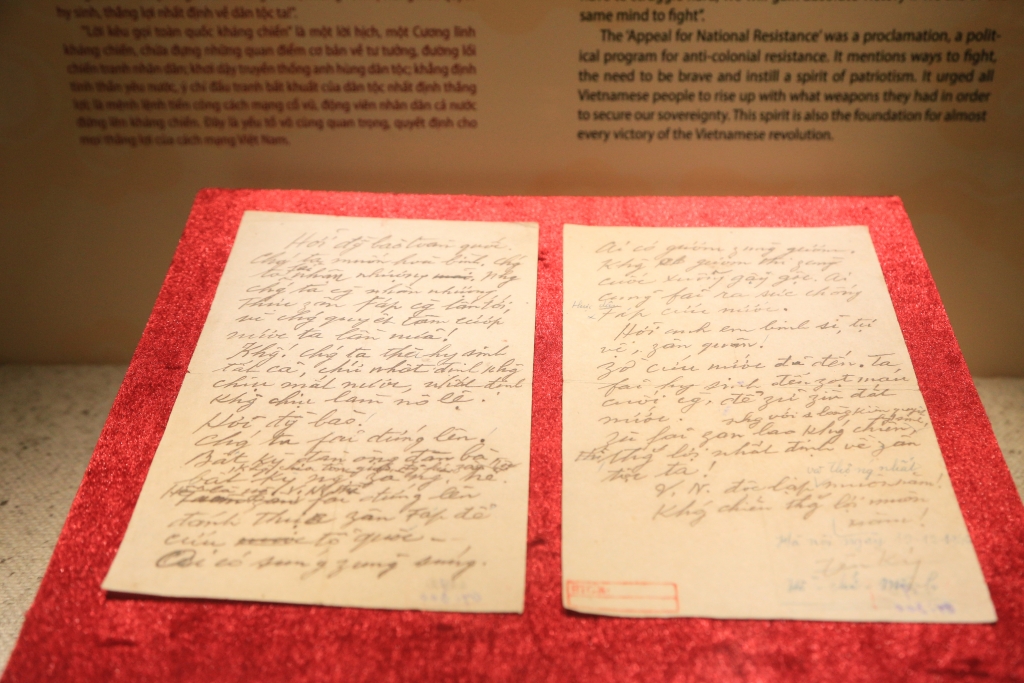 hy sinh, thắng lợi nhất định về dân tộc ta!".
"Lời kêu gọi toàn quốc kháng chiến" là một lời hịch, một Cương lĩnh
kháng chiến, chứa đựng những quan điểm cơ bản về tư tưởng, đường lối
chiến tranh nhân dân; khơi dậy truyền thống anh hùng dân tộc; khẳng định
tinh thần yêu nước, ý chí đấu tranh bất khuất của dân tộc nhất định thắng
lợi; là mệnh lệnh tiến công cách mạng cổ vũ, động viên nhân dân cả nước
đứng lên kháng chiến. Đây là yếu tố vô cùng quan trọng, quyết định cho
mọi thắng lợi của cách mạng Việt Nam.
same mind to fight".
The 'Appeal for National Resistance' was a proclamation, a polit-
ical program for anti-colonial resistance. It mentions ways to fight,
the need to be brave and instill a spirit of patriotism. It urged all
Vietnamese people to rise up with what weapons they had in order
to secure our sovereignty. This spirit is also the foundation for almost
every victory of the Vietnamese revolution.
Hỡi đ/bào toàn quốc.
Chg ta muốn hoà bình, chg
ta nhân nhượng
chg ta cg nhân nhượng
thực zân Fáp cg lấn tới,
vì chg quyết tâm cướp
nước ta lần nữa!
Khg! chg ta thà hy sinh
tất cả, chứ nhất định khg
chịu mất nước, nhất định
khg chịu làm nô lệ!
Hỡi đ/bào!
Chg ta fải đứng lên!
Bất kỳ đàn ông đàn bà,
bất kỳ ng zà ng trẻ.
fải đứng lên
đánh thực zân Fáp để
cứu tổ quốc
Ai có súng zùng súng.
Ai có gươm zùng gươm.
Khg có gươm thì zùng
cuốc xuổng gậy gộc. Ai
cũng fải ra sức chống
Fáp cứu nước.
Hỡi anh em binh sĩ, tự
vệ, zân quân!
Zờ cứu nước đã đến. Ta
fải hy sinh đến zọt máu
cuối cg, để zữ zìn đất
nước.
Zù fải zan lao khg chiến,
thg lợi nhất định về zân
tộc ta!
và thống nhất
V.N. độc lập muôn năm!
Khg chiến thg lợi muôn
năm!